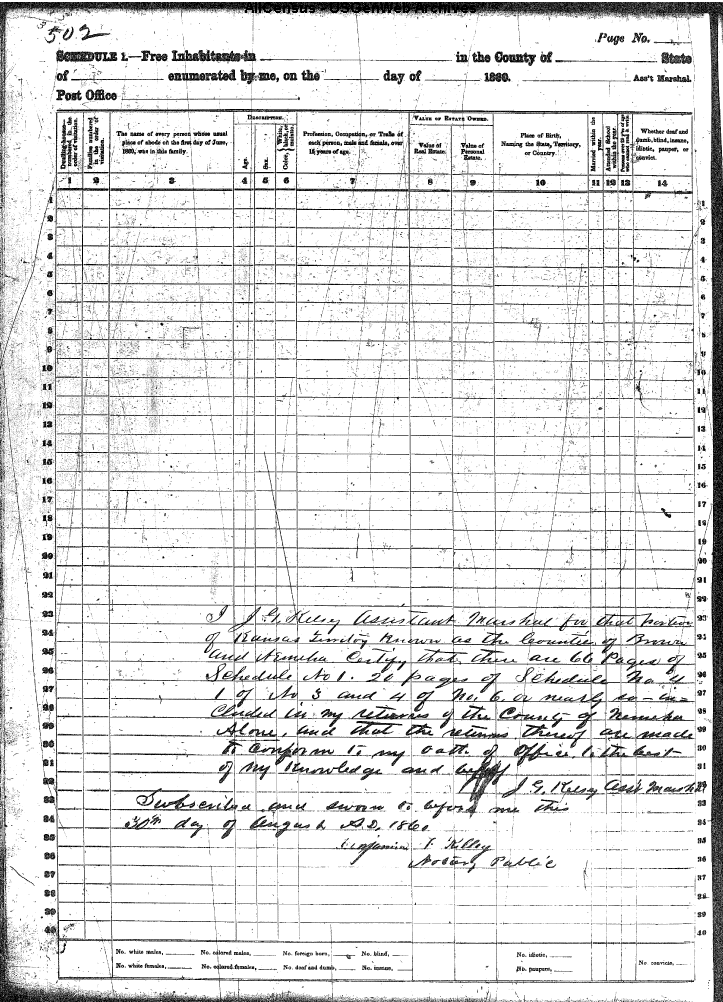 AllCensus - USGenWeb Archives
502
Page No.
SCHEDULE 1.—Free Inhabitants in in the County of State
of enumerated by me, on the day of 1860. Ass't Marshal.
Post Office
Dwelling-houses numbered in the order of visitation.
Families numbered in the order of visitation.
The name of every person whose usual place of abode on the first day of June, 1860, was in this family.
DESCRIPTION.
Age.
Sex.
Color, White, black, or mulatto.
Profession, Occupation, or Trade of each person, male and female, over 15 years of age.
VALUE OF ESTATE OWNED.
Value of Real Estate.
Value of Personal Estate.
Place of Birth, Naming the State, Territory, or Country.
Married within the year.
Attended School within the year.
Persons over 20 y'rs of age who cannot read & write.
Whether deaf and dumb, blind, insane, idiotic, pauper, or convict.
1 2 3 4 5 6 7 8 9 10 11 12 13 14
1 1
2 2
3 3
4 4
5 5
6 6
7 7
8 8
9 9
10 10
11 11
12 12
13 13
14 14
15 15
16 16
17 17
18 18
19 19
20 20
21 21
22 22
23 I J. G. Kelsey Assistant Marshal for that portion 23
24 of Kansas Known as the Counties of Brown 24
25 and Nemeha Certify that there are 66 Pages of 25
26 Schedule No 1. 20 pages of Schedule No. 4 26
27 1 of No 3 and 4 of No. 6 or nearly so - in- 27
28 cluded in my returns of the County of Nemeha 28
29 Alone, and that the returns thereof are made 29
30 to conform to my oath of office to the best 30
31 of my Knowledge and belief 31
32 J. G. Kelsey Ass't Marshal 32
33 Subscribed and sworn to before me this 33
34 30th day of August A.D. 1860. 34
35 Benjamin F. Killey 35
36 Notary Public 36
37 37
38 38
39 39
40 40
No. white males, No. colored males, No. foreign born, No. blind, No. idiotic, No. convicts,
No. white females, No. colored females, No. deaf and dumb, No. insane, No. paupers,